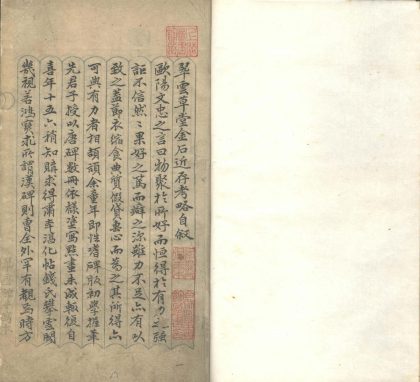 翠雲草堂金石近存考略自叙
歐陽文忠之言曰物聚於所好而恒得於有力之強
詎不信然果好之篤而癖之深雖力不足亦有以
致之蓋節衣縮食典質假貸專心而為之其所得亦
可與有力者相頡頏余童年即性嗜碑版初學握筆
先君子授以唐碑數冊依樣塗寫點畫未成輒復自
喜年十五六稍知購求得肅本淳化帖錢氏攀雲閣
幾視若鴻寶求所謂漢碑則曹全外罕有觀焉時方